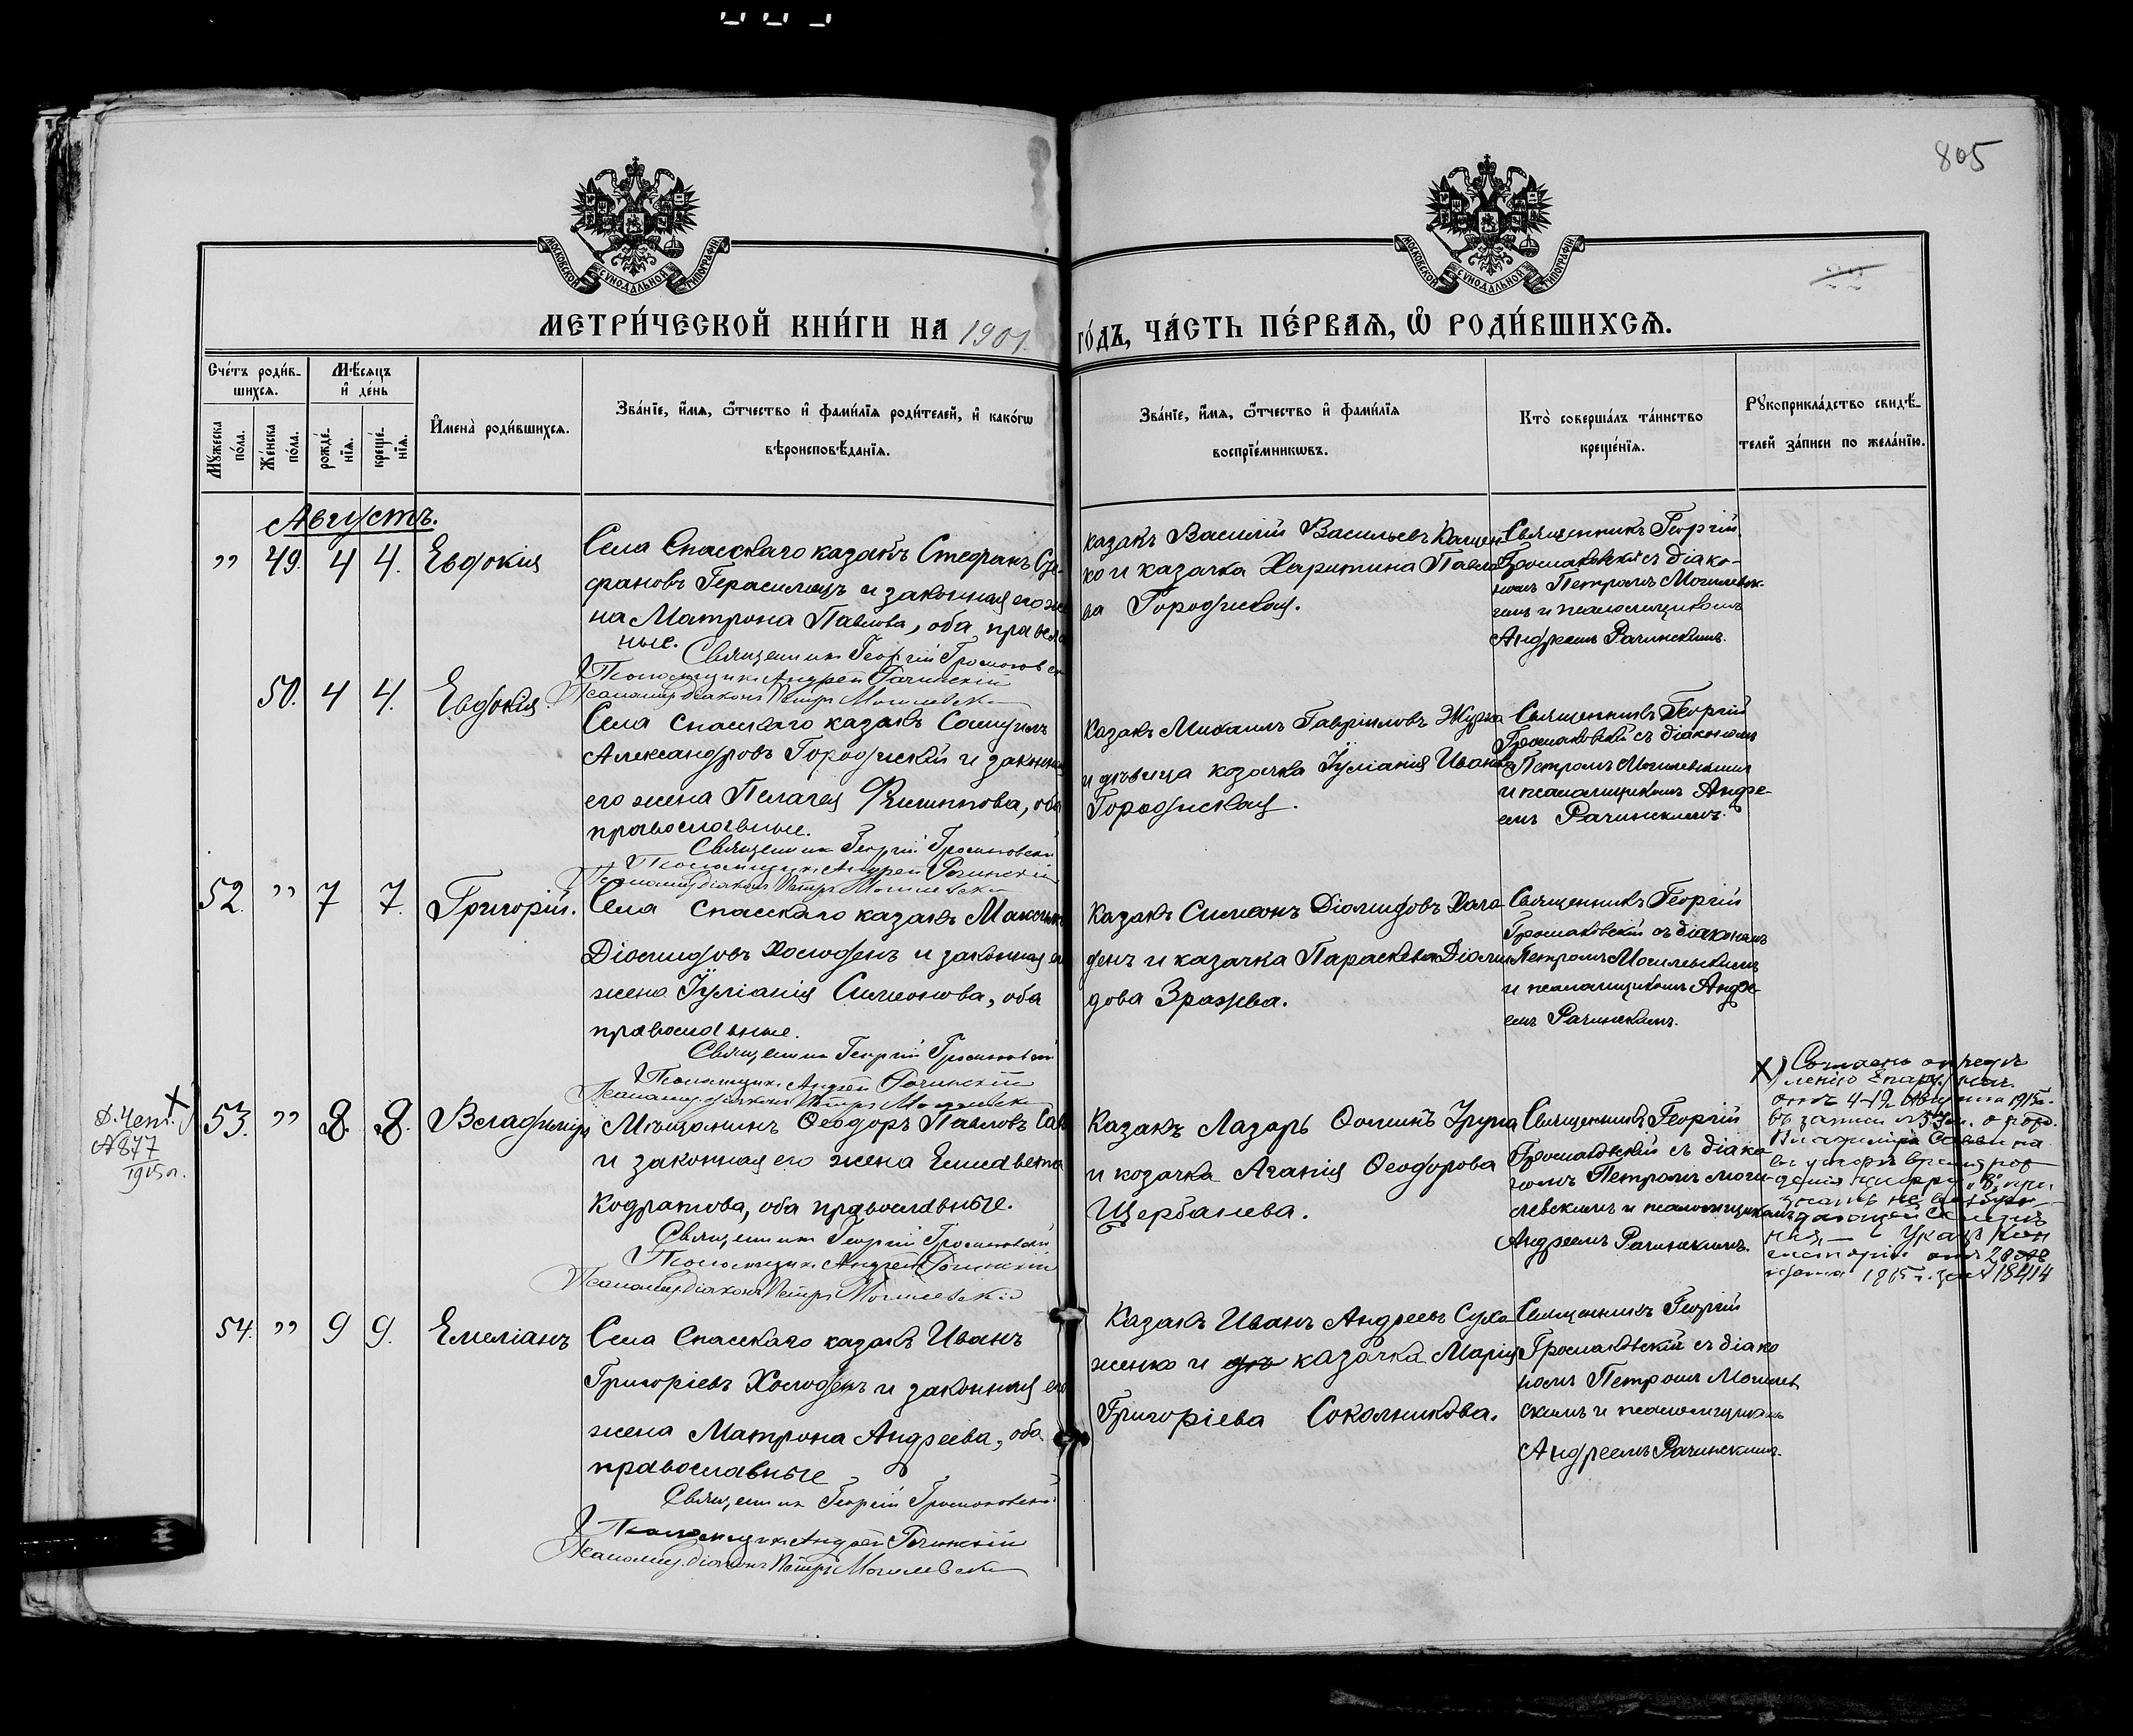 805
МОСКОВСКОЙ СѴНОДАЛЬНОЙ ТИПОГРАФІИ
МОСКОВСКОЙ СѴНОДАЛЬНОЙ ТИПОГРАФІИ
МЕТРИ́ЧЕСКОЙ КНИ́ГИ НА 1901 ГО́ДЪ, ЧА́СТЬ ПЕ́РВАѦ, Ѡ҆ РОДИ́ВШИХСѦ.
Сче́тъ роди́в-
шихсѧ.
Мꙋжеска по́ла.
Же́нска по́ла.
Мѣ́сѧцъ
и҆ де́нь
рожде́-
нїѧ.
креще́-
нїѧ.
И҆мена̀ роди́вшихсѧ.
Зва́нїе, и҆́мѧ, ѻ҆́тчество и҆ фами́лїѧ роди́телей, и҆ како́гѡ
вѣроисповѣ́данїѧ.
Зва́нїе, и҆́мѧ, ѻ҆́тчество и҆ фами́лїѧ
воспрїе́мникѡвъ.
Кто̀ соверша́лъ та́инство
креще́нїѧ.
Рꙋкоприкла́дство свидѣ́-
телей за́писи по жела́нїю.
Августъ.
„ 49. 4 4. Евдокія
Села Спасскаго казакъ Стефанъ Сте
фановъ Герасимецъ и законная его же
на Матрона Павлова, оба правосла
ные.
Священникъ Георгій Громаковск
Псаломщикъ Андрей Рачинскій
Псаломщ. діаконъ Петръ Могилевскі
казакъ Василій Васильевъ Кащен
ко и казачка Харитина Павло
ва Городиская.
Священникъ Георгій
Громаковскій съ діако-
номъ Петромъ Могилевск-
имъ и псаломщикомъ
Андреемъ Рачинскимъ.
50. 4 4. Евдокія
Села Спасскаго казакъ Самуилъ
Александровъ Городискій и законная
его жена Пелагея Филиппова, оба
православные.
Священникъ Георгій Громаковскі
Псаломщикъ Андрей Рачинскій
Псаломщ. діаконъ Петръ Могилевскі
Казакъ Михаилъ Гавріиловъ Журба
и дѣвица козачка Іуліанія Иванова
Городиская.
Священникъ Георгій
Громаковскій съ діакономъ
Петромъ Могилевскимъ
и псаломщикомъ Андре-
емъ Рачинскимъ.
52. „ 7 7. Григорій.
Села Спасскаго казакъ Максимъ
Діомидовъ Холоденъ и законная его
жена Іуліанія Симеонова, оба
православные.
Священникъ Георгій Громаковскій
Псаломщикъ Андрей Рачинскій
Псаломщ. діаконъ Петръ Могилевскі
Казакъ Симеонъ Діомидовъ Холо
денъ и казачка Параскева Діоми
дова Зражва.
Священникъ Георгій
Громаковскій съ діакономъ
Петромъ Могилевскимъ
и псаломщикомъ Андре-
емъ Рачинскимъ.
№ 877
1915 г.
53. „ 8. 8. Владиміръ
Мѣщанинъ Ѳеодоръ Павловъ Сав
и законная его жена Елисавета
Кодратова, оба православные.
Священникъ Георгій Громаковскій
Псаломщикъ Андрей Рачинскій
Псаломщ. діаконъ Петръ Могилевскій
Казакъ Лазарь Ѳоминъ Група
и козачка Аганія Ѳеодорова
Щербанева.
Священникъ Георгій
Громаковскій съ діако
номъ Петромъ Моги-
левскимъ и псаломщикомъ
Андреемъ Рачинскимъ.
х) Согласно опредѣ
ленію Епарх. нач.
отъ 4-12 Августа 1915 г.
въ записи № 53 м. о рожд.
Владиміра
„8“
Указъ Кон
систоріи отъ 28
1915 г. за № 18414
54. „ 9 9. Емеліанъ
Села Спасскаго казакъ Иванъ
Григоріевъ Холоденъ и законная его
жена Матрона Андреева, оба
православные
Священникъ Георгій Громаковскій
Псаломщикъ Андрей Рачинскій
Псаломщ. діаконъ Петръ Могилевскі
Казакъ Иванъ Андреевъ Сухо
женко и казачка Марія
Григоріева Сокольникова.
Священникъ Георгій
Громаковскій съ діако
номъ Петромъ Могилев
скимъ и псаломщикомъ
Андреемъ Рачинскимъ.